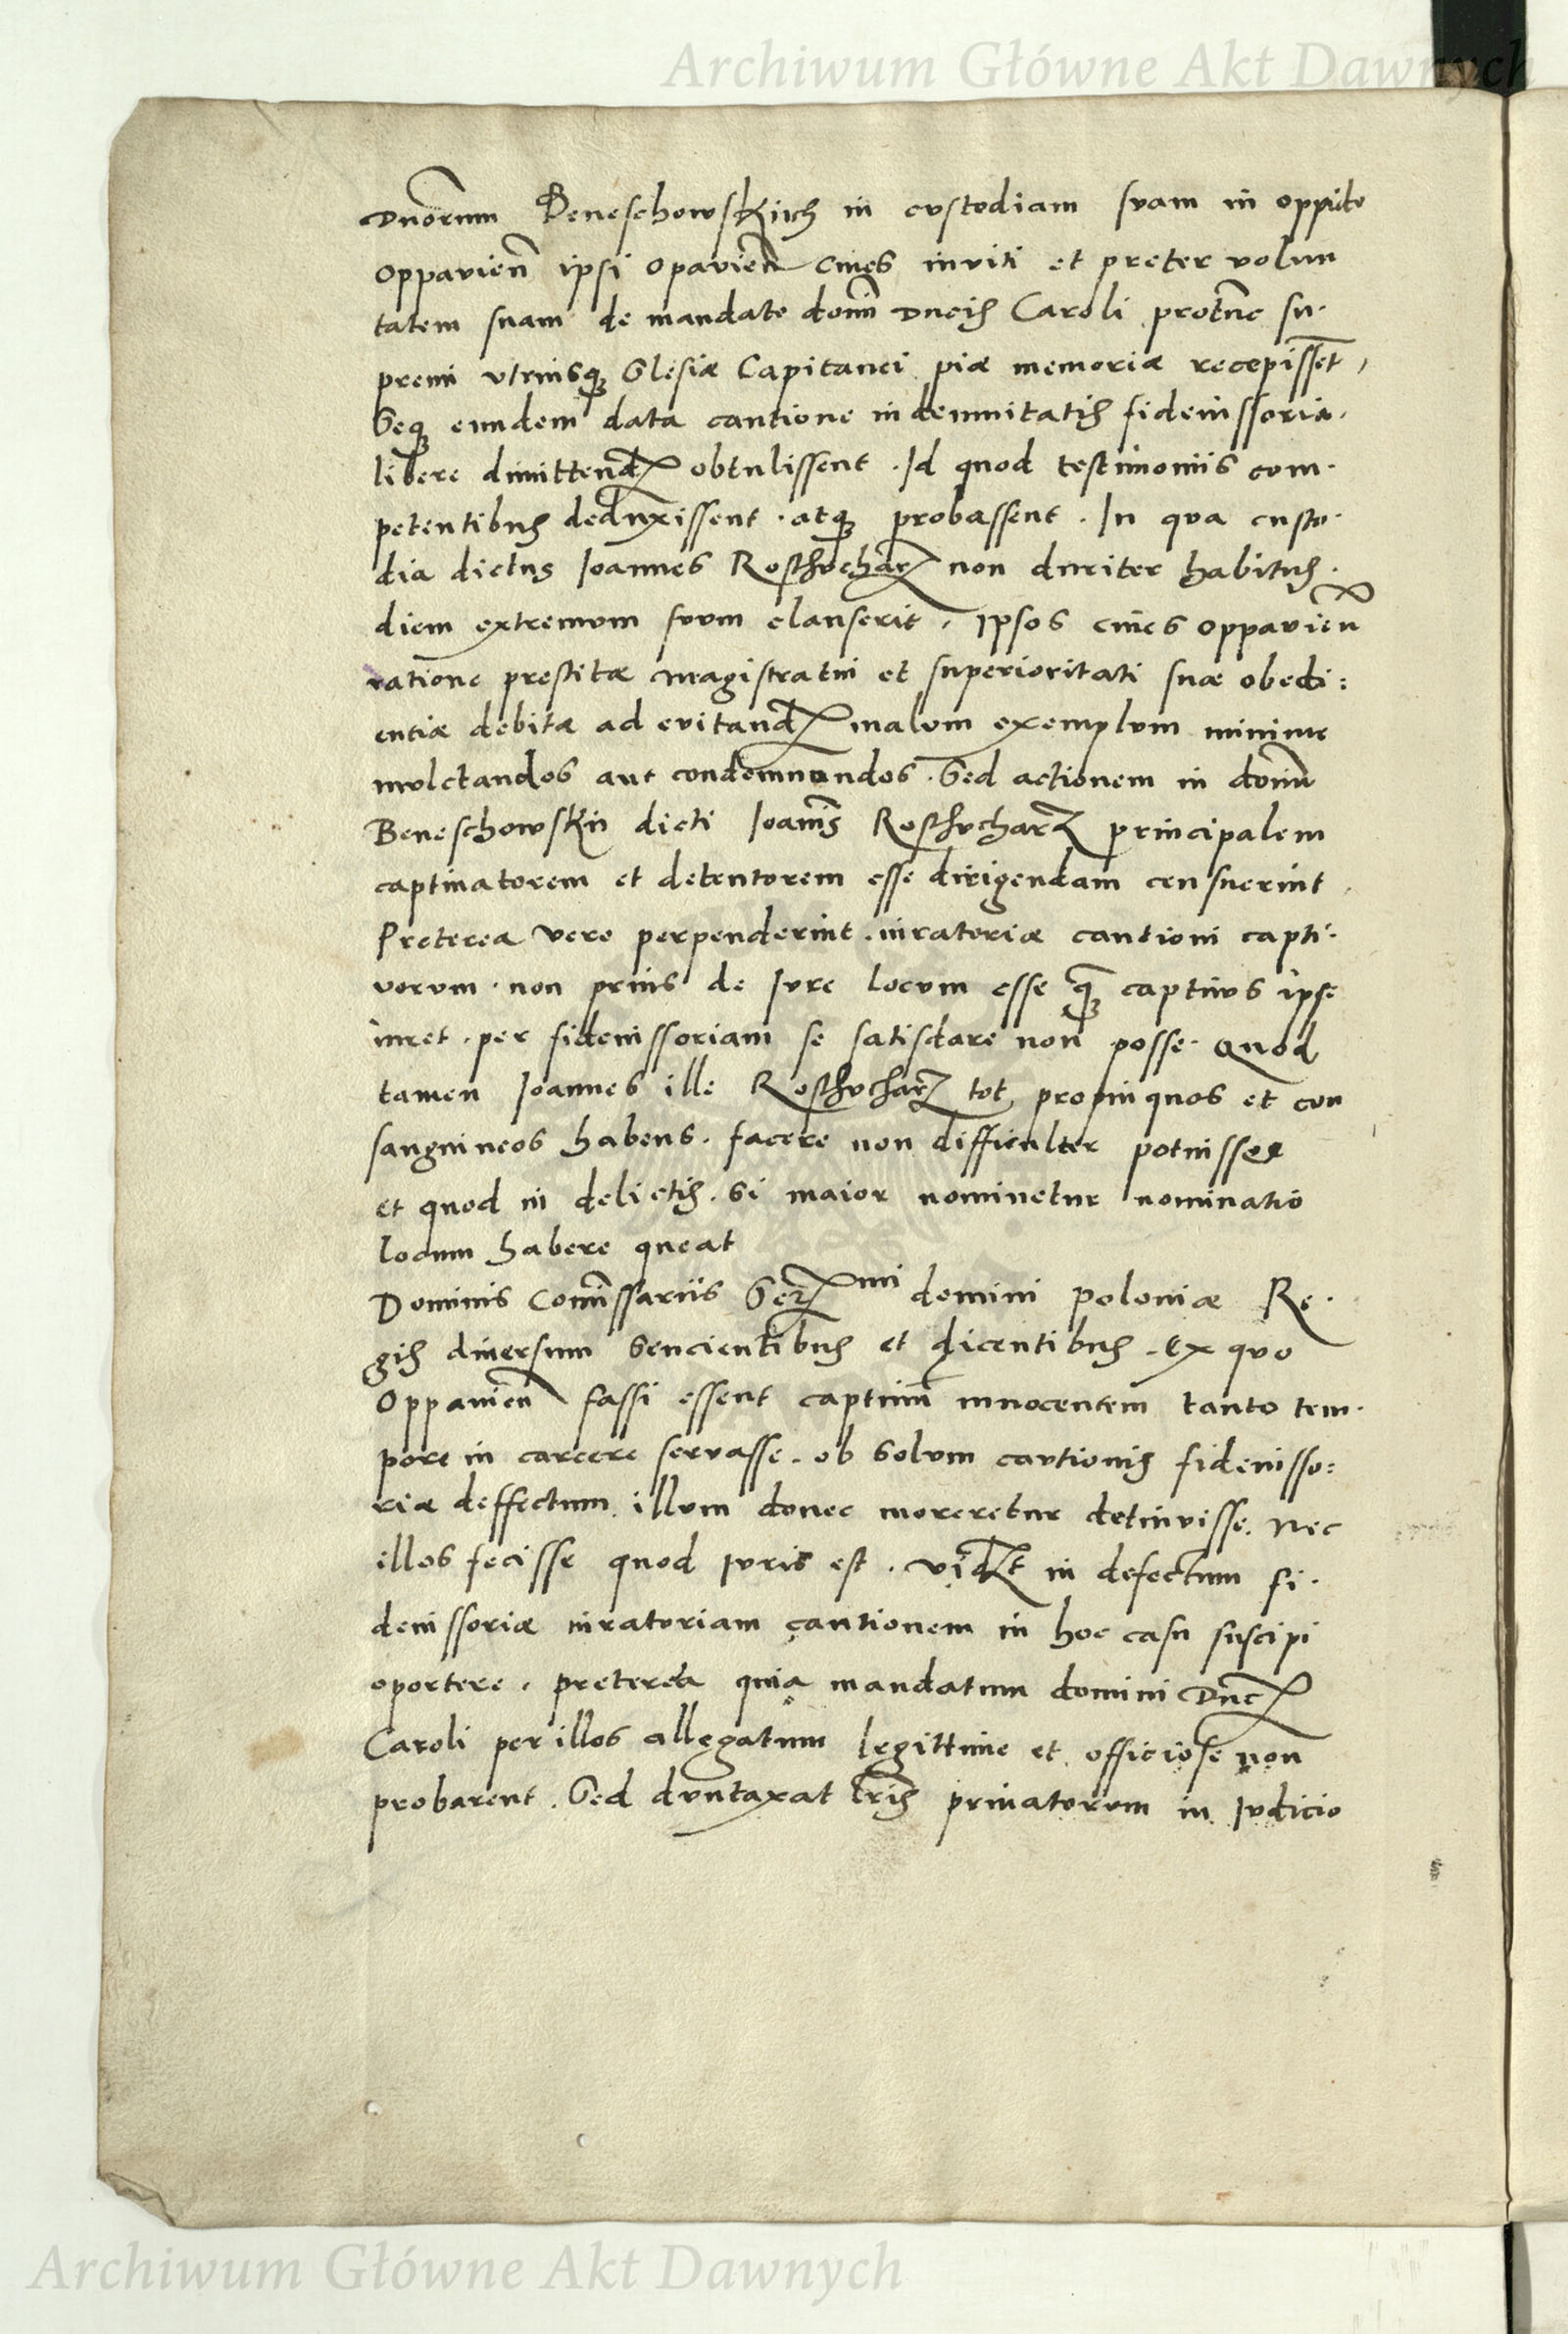 Archiwum Główne Akt Dawnych
Dnorum Beneschowskich in custodiam suam in oppido
Oppavien̄ ipsi Opavien̄ Cives inviti et preter volun
tatem suam de mandato domi Ducis Caroli protunc su·
premi utriusq; Slesiæ Capitanei piæ memoriæ recepissēt,
Seq; eundem data cautione indemnitatis fideiussoria·
libere dimittend obtulissent · Id quod testimoniis com·
petentibus deduxissent · atq; probassent · In qua custo·
dia dictus Ioannes Rosthvcharz non duriter habitus·
diem extremum suum clauserit, ipsos cives Oppavien
ratione prestitæ magistratui et superioritati suæ obedi:
entiæ debitæ ad evitand malum exemplum minime
mulctandos aut condemnandos · Sed actionem in domi
Beneschowskii dicti Ioanis Rosthvcharz principalem
captivatorem et detentorem esse dirigendam censuerint,
Preterea vero perpenderint · iuratoriæ cautioni capti·
vorum · non prius de Iure locum esse q; captivus ipse
iuret · per fideiussoriam se satisdare non posse · Quod
tamen Ioannes ille Rosthvcharz tot propinquos et con
sanguineos habens · facere non difficulter potuisset
et quod in delictis · Si maior nominetur nominatio
locum habere queat
Dominis Comissariis Ser mi domini Poloniæ Re·
gis diversum Sencientibus et dicentibus · Ex quo
Oppavien fassi essent captivū innocentem tanto tem·
pore in carcere servasse · ob Solum cautionis fideiusso:
riæ deffectum illum donec moreretur detinuisse. Nec
illos fecisse quod Iuris est · vidzt in defectum fi·
deiussoriæ iuratoriam cautionem in hoc casu suscipi
oportere, preterea quia mandatum domini Duc
Caroli per illos allegatum legittime et officiose non
probarent · Sed duntaxat lris privatorum in Iudicio
Archiwum Główne Akt Dawnych